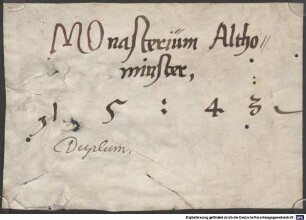 MOnasterium Altho//
minster,
1 5 : 4 3
Duplum.
Digitalisierung gefördert durch die Deutsche Forschungsgemeinschaft